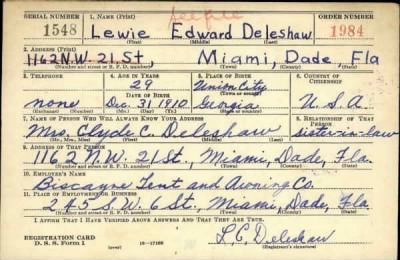 SERIAL NUMBER 1. NAME (Print) ORDER NUMBER
1548 Lewie Edward Deleshaw 1984
(First) (Middle) (Last)
2. ADDRESS (Print)
1162 N.W. 21 St, Miami, Dade, Fla
(Number and street or R. F. D. number) (Town) (County) (State)
3. TELEPHONE 4. AGE IN YEARS 5. PLACE OF BIRTH 6. COUNTRY OF CITIZENSHIP
29 Union City
DATE OF BIRTH (Town or county)
none Dec. 31, 1910 Georgia U. S. A.
(Exchange) (No.) (Mo.) (Day) (Yr.) (State or country)
7. NAME OF PERSON WHO WILL ALWAYS KNOW YOUR ADDRESS 8. RELATIONSHIP OF THAT PERSON
Mrs. Clyde C. Deleshaw sister-in-law
(Mr., Mrs., Miss) (First) (Middle) (Last)
9. ADDRESS OF THAT PERSON
1162 N.W. 21 St., Miami, Dade, Fla.
(Number and street or R. F. D. number) (Town) (County) (State)
10. EMPLOYER'S NAME
Biscayne Tent and Awning Co.
11. PLACE OF EMPLOYMENT OR BUSINESS
245 S.W. 6 St., Miami, Dade, Fla
(Number and street or R. F. D. number) (Town) (County) (State)
I AFFIRM THAT I HAVE VERIFIED ABOVE ANSWERS AND THAT THEY ARE TRUE.
REGISTRATION CARD
D. S. S. Form 1 16-17105 L. E. Deleshaw
(Registrant's signature)